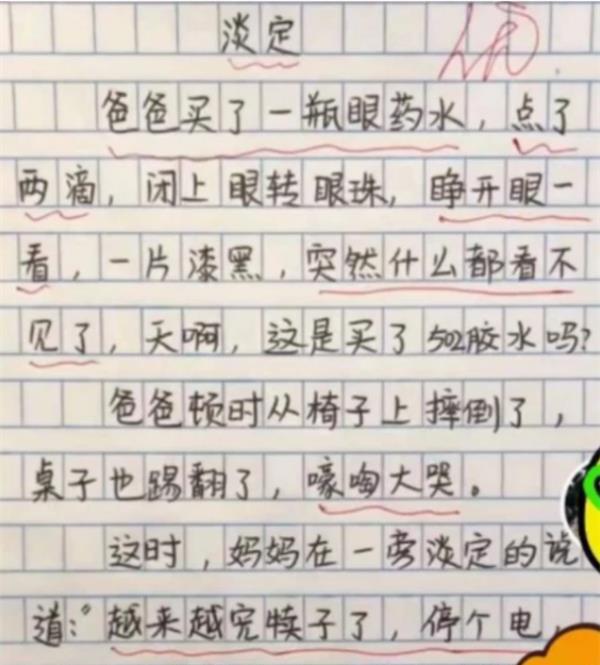 淡定
优
爸爸买了一瓶眼药水，点了
两滴，闭上眼转眼珠，睁开眼一
看，一片漆黑，突然什么都看不
见了，天啊，这是买了502胶水吗？
爸爸顿时从椅子上摔倒了，
桌子也踢翻了，嚎啕大哭。
这时，妈妈在一旁淡定的说
道：“越来越完犊子了，停个电，